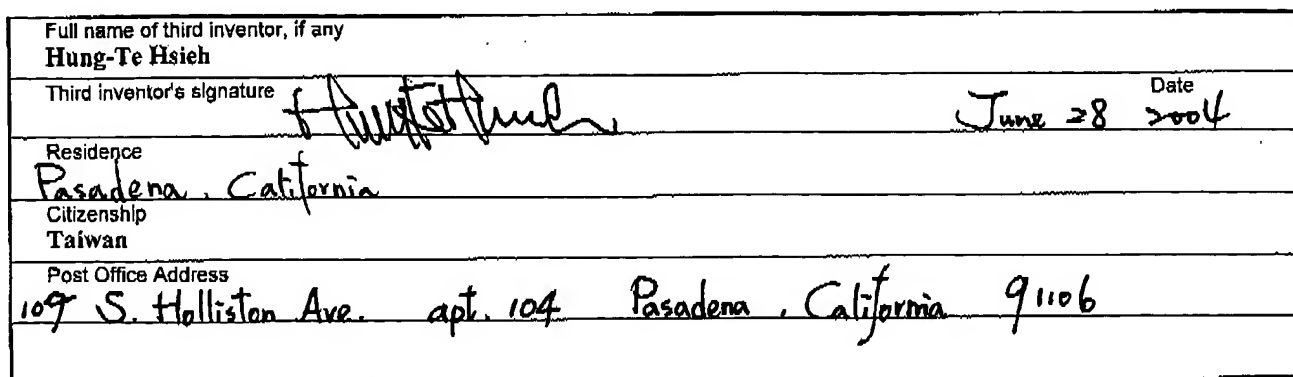 Full name of third inventor, if any
Hung-Te Hsieh
Third inventor's signature
Date
June 28 2004
Residence
Pasadena, California
Citizenship
Taiwan
Post Office Address
109 S. Holliston Ave. apt. 104 Pasadena, California 91106